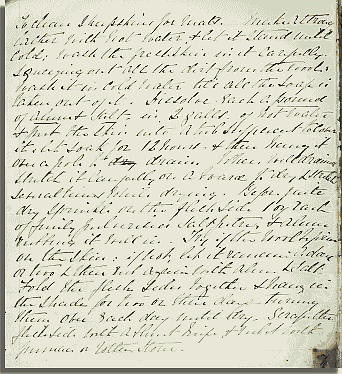 To Clean Sheepskins for Matts. Make a Strong
Lather with Hot Water & let it Stand until
Cold; Wash the fresh skin in it Carefully
Squeezing out all the dirt from the Wool;
Wash it in Cold Water till all the Soap is
taken out of it. Dissolve Each a pound
of Alum & Salt in 2 galls. of Hot Water
& put the skin into a tub sufficient to cover
it; let Soak for 12 hours & then hang it
on a pole to drain. When well drained
Stretch it Carefully on a board to dry & Stretch
several times while drying. Before quite
dry Sprinkle on the flesh Side 1 oz Each
of finely pulverized Saltpetre & Alum
rubbing it Well in. Try if the Wool is firm
on the skin; if not, let it remain a day
or two & then rub again with Alum &
Fold the flesh Sides together & hang in
the Shade for two or three days turning
them over Each day until dry. Scrape the
flesh side with a blunt knife & rub it with
pumice or Rotten Stone.